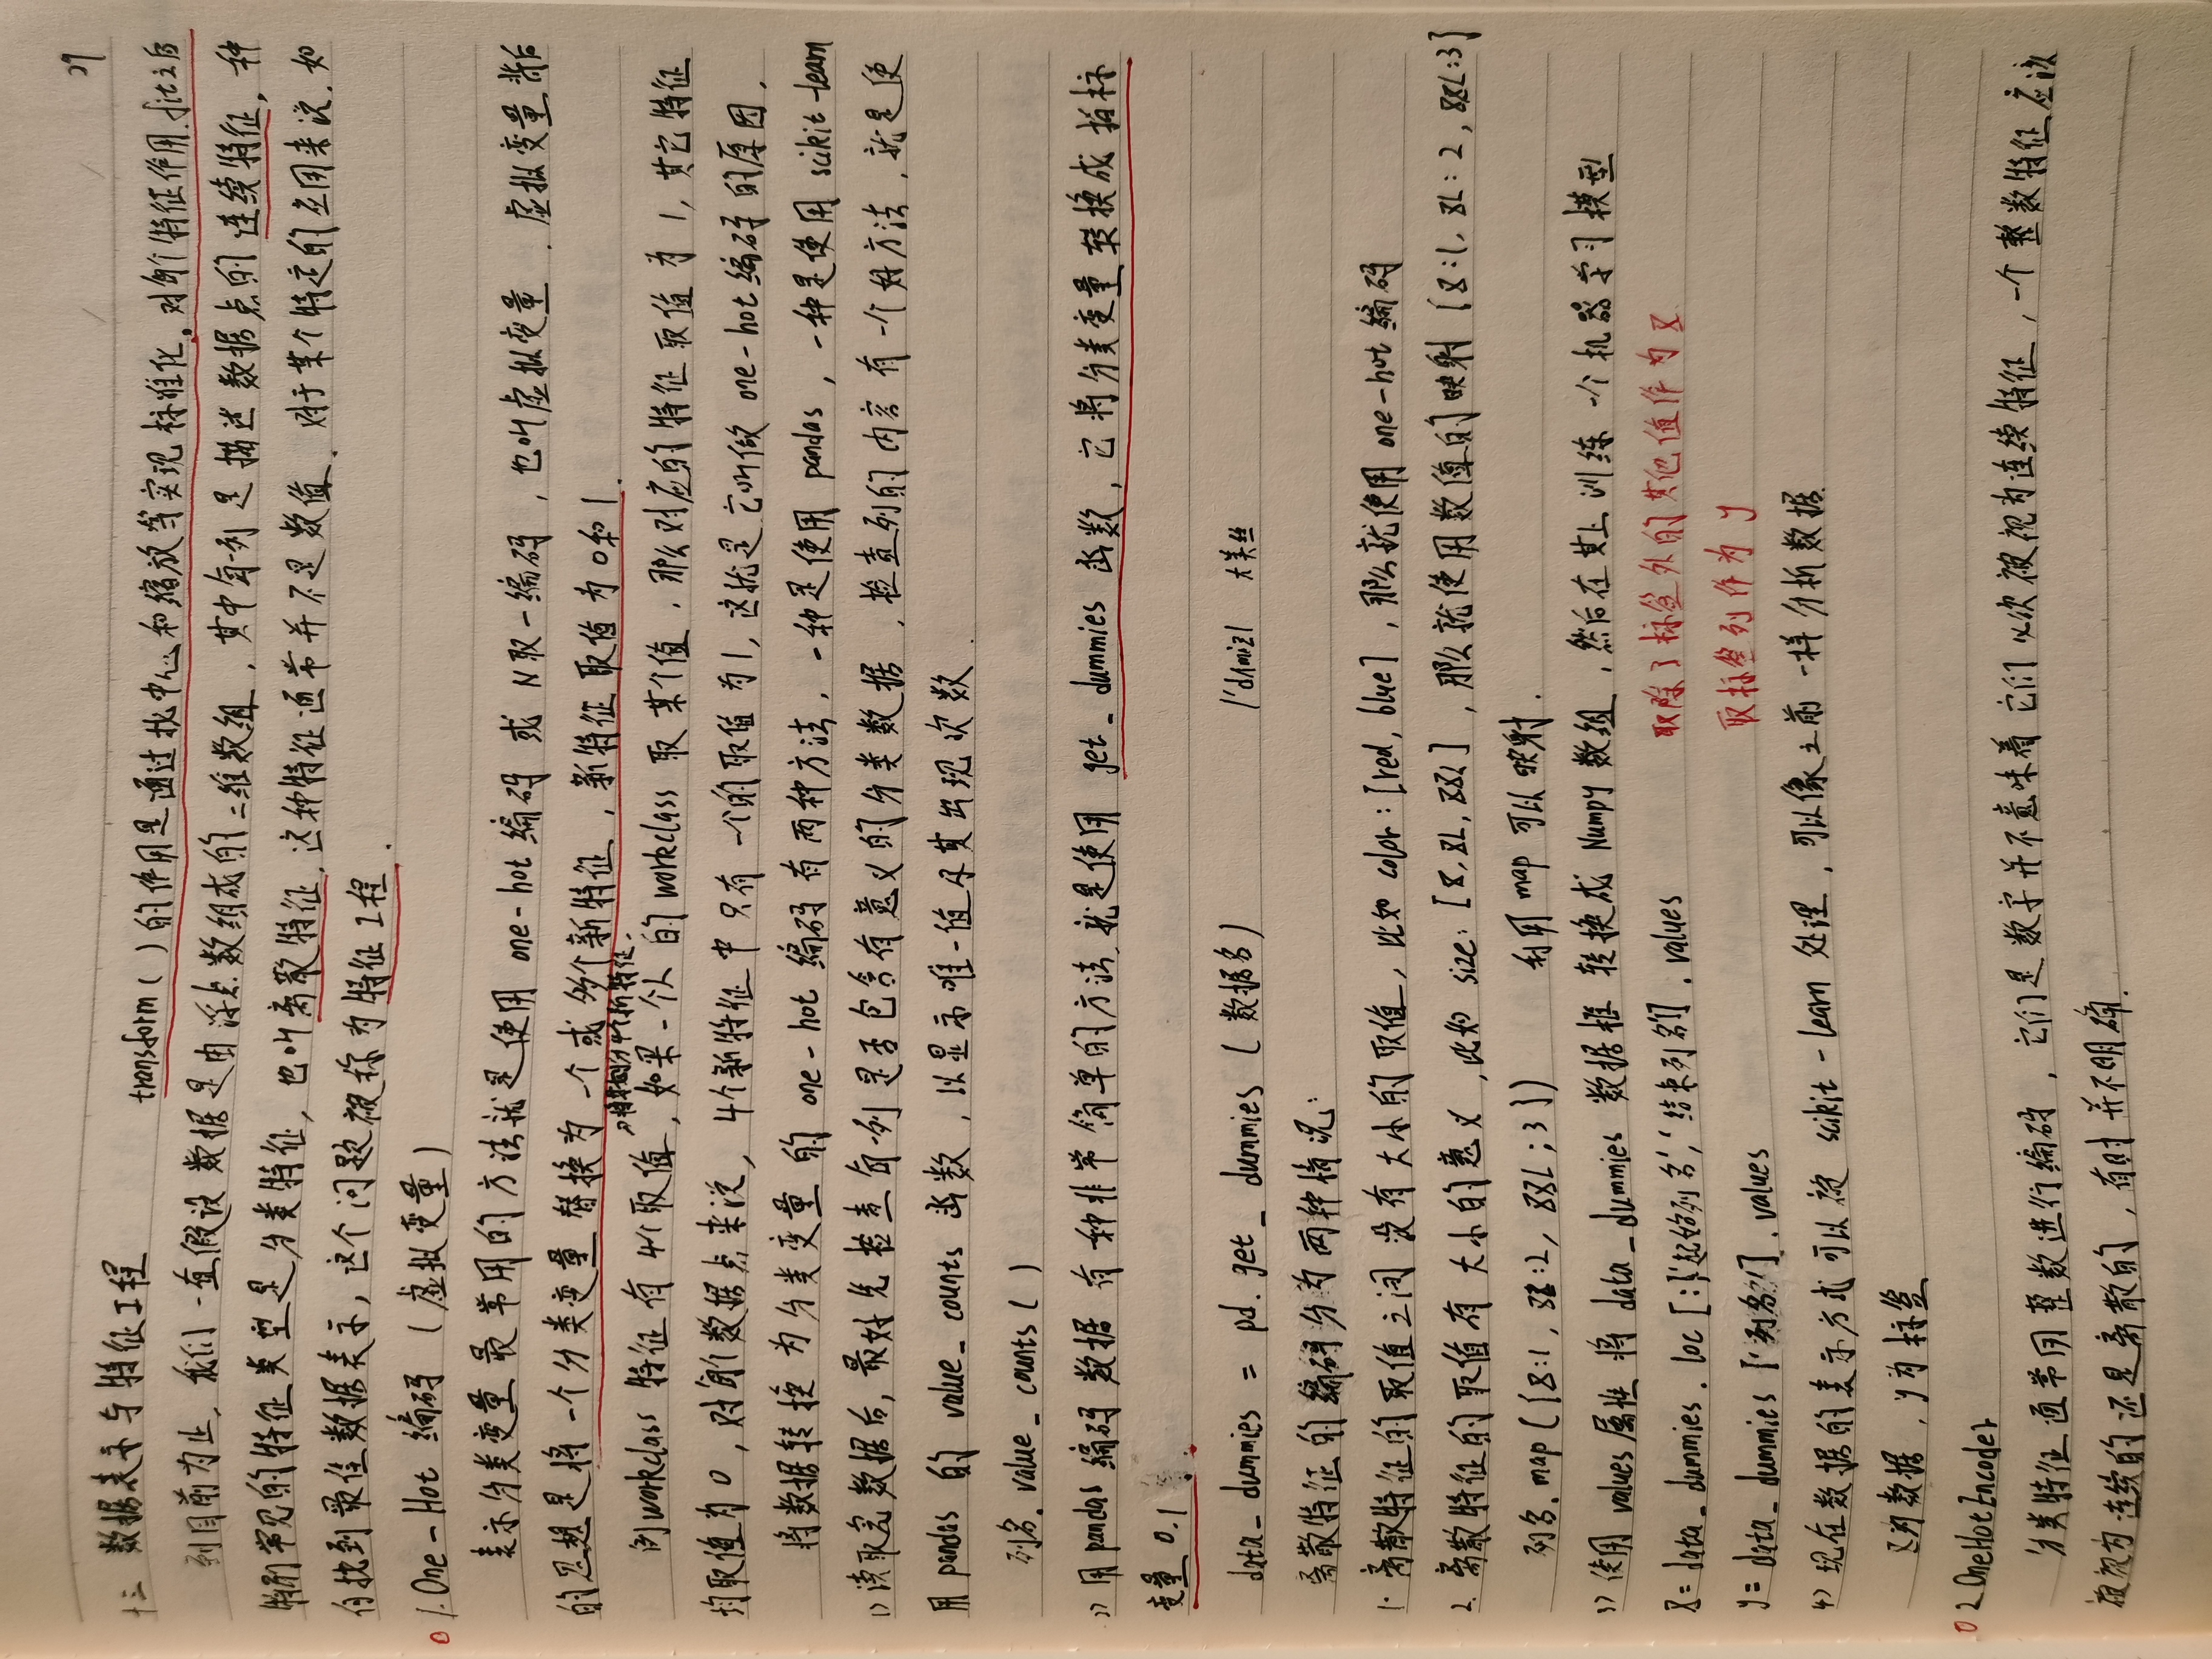 29
十三 数据表示与特征工程
transform()的作用是通过找中心和缩放等实现标准化,对每个特征作用.fit之后
到目前为止,我们一直假设数据是由浮点数组成的二维数组,其中每一列是描述数据点的连续特征,种
特别常见的特征类型是分类特征,也叫离散特征,这种特征通常并不是数值.对于某个特定的应用来说,如
何找到最佳数据表示,这个问题被称为特征工程.
1.One-Hot 编码 (虚拟变量)
表示分类变量最常用的方法就是使用 one-hot 编码 或 N取一编码,也叫虚拟变量.虚拟变量背后
的思想是将一个分类变量替换为一个或多个新特征,新特征取值为0和1.
例workclass 特征有4个取值,如果一个人的workclass 取某个值,那么对应的特征取值为1,其它特征
均取值为0,对每个数据点来说,4个新特征中只有一个的取值为1,这就是它叫做 one-hot编码的原因.
将数据转换为分类变量的 one-hot 编码有两种方法,一种是使用 pandas,一种是使用 scikit-learn
1)读取完数据后,最好先检查每一列是否包含有意义的分类数据,检查列的内容有一个好方法,就是使
用 pandas 的 value_counts 函数,以显示唯一值及其出现次数.
列名.value_counts()
2)用pandas编码数据有一种非常简单的方法,就是使用 get_dummies 函数,它将分类变量转换成指标
变量 0.1
data_dummies = pd.get_dummies(数据名) 大美丝
离散特征的编码分为两种情况:
1.离散特征的取值之间没有大小的取值,比如 color:[red,blue],那么就使用 one-hot编码
2.离散特征的取值有大小的意义,比如 size:[X,XL,XXL],那么就使用数值的映射{X:1,XL:2,XXL:3}
列名.map({X:1,XL:2,XXL:3}) 利用map 可以映射.
3)使用 values属性 将 data_dummies 数据框 转换成 Numpy 数组,然后在其上训练一个机器学习模型
X=data_dummies.loc[:,'起始列名','结束列名'].values 取除了标签外的其他值作为X
y=data_dummies['列名'].values 取标签列作为 y
4)现在数据的表示方式可以被 scikit-learn 处理,可以像之前一样分析数据.
X为数据,y为标签
2.OneHotEncoder
分类特征通常用整数进行编码,它们是数字并不意味着它们必须被视为连续特征,一个整数特征应该
被视为连续的还是离散的,有时并不明确.